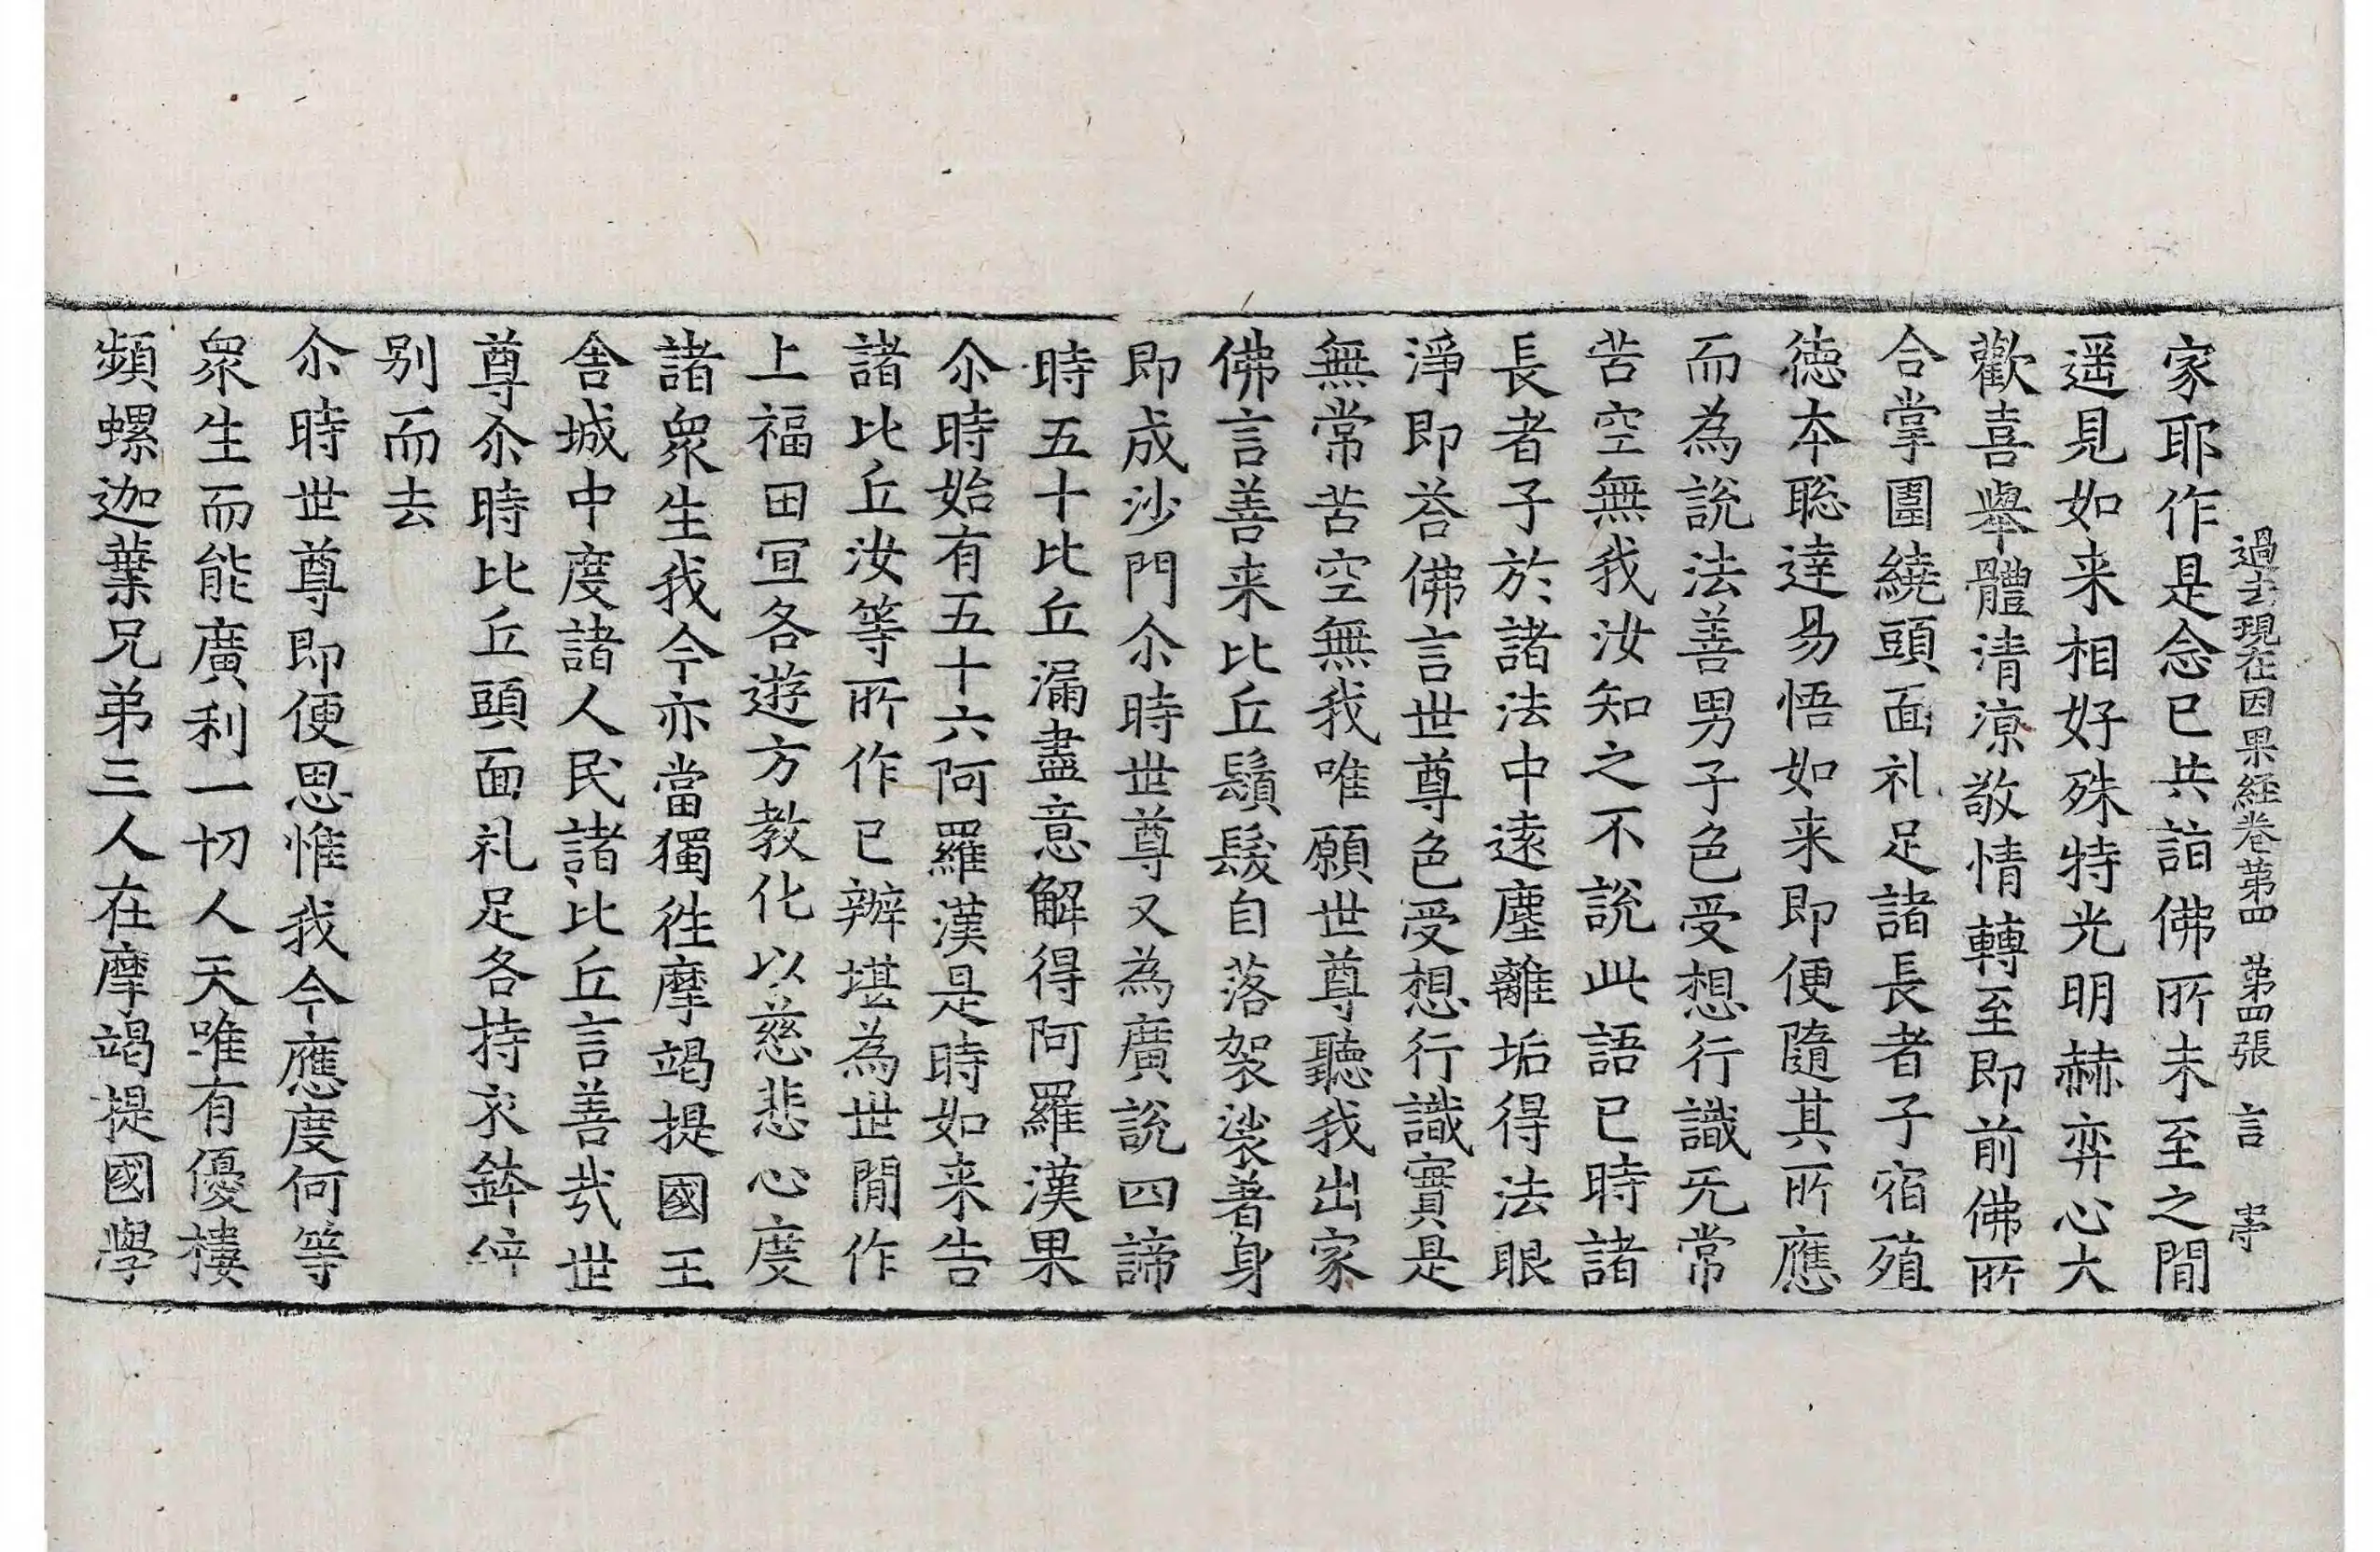 過去現在因果経卷苐四 苐四張 言
家耶作是念已共詣佛所未至之間
遥見如来相好殊特光明赫弈心大
歡喜舉體清涼敬情轉至即前佛所
合掌圍繞頭面礼足諸長者子宿殖
德本聡達易悟如来即便隨其所應
而為説法善男子色受想行識无常
苦空無我汝知之不説此語已時諸
長者子於諸法中逺塵離垢得法眼
淨即荅佛言世尊色受想行識實是
無常苦空無我唯願世尊聽我出家
佛言善来比丘鬚髮自落袈裟著身
即成沙門尒時世尊又為廣説四諦
時五十比丘漏盡意解得阿羅漢果
尒時始有五十六阿羅漢是時如来告
諸比丘汝等所作已辦堪為世間作
上福田冝各遊方教化以慈悲心度
諸衆生我今亦當獨徃摩竭提國王
舎城中度諸人民諸比丘言善㢤世
尊尒時比丘頭面礼足各持衣鉢
别而去
尒時世尊即便思惟我今應度何等
衆生而能廣利一切人天唯有優樓
頻螺迦葉兄弟三人在摩竭提國學